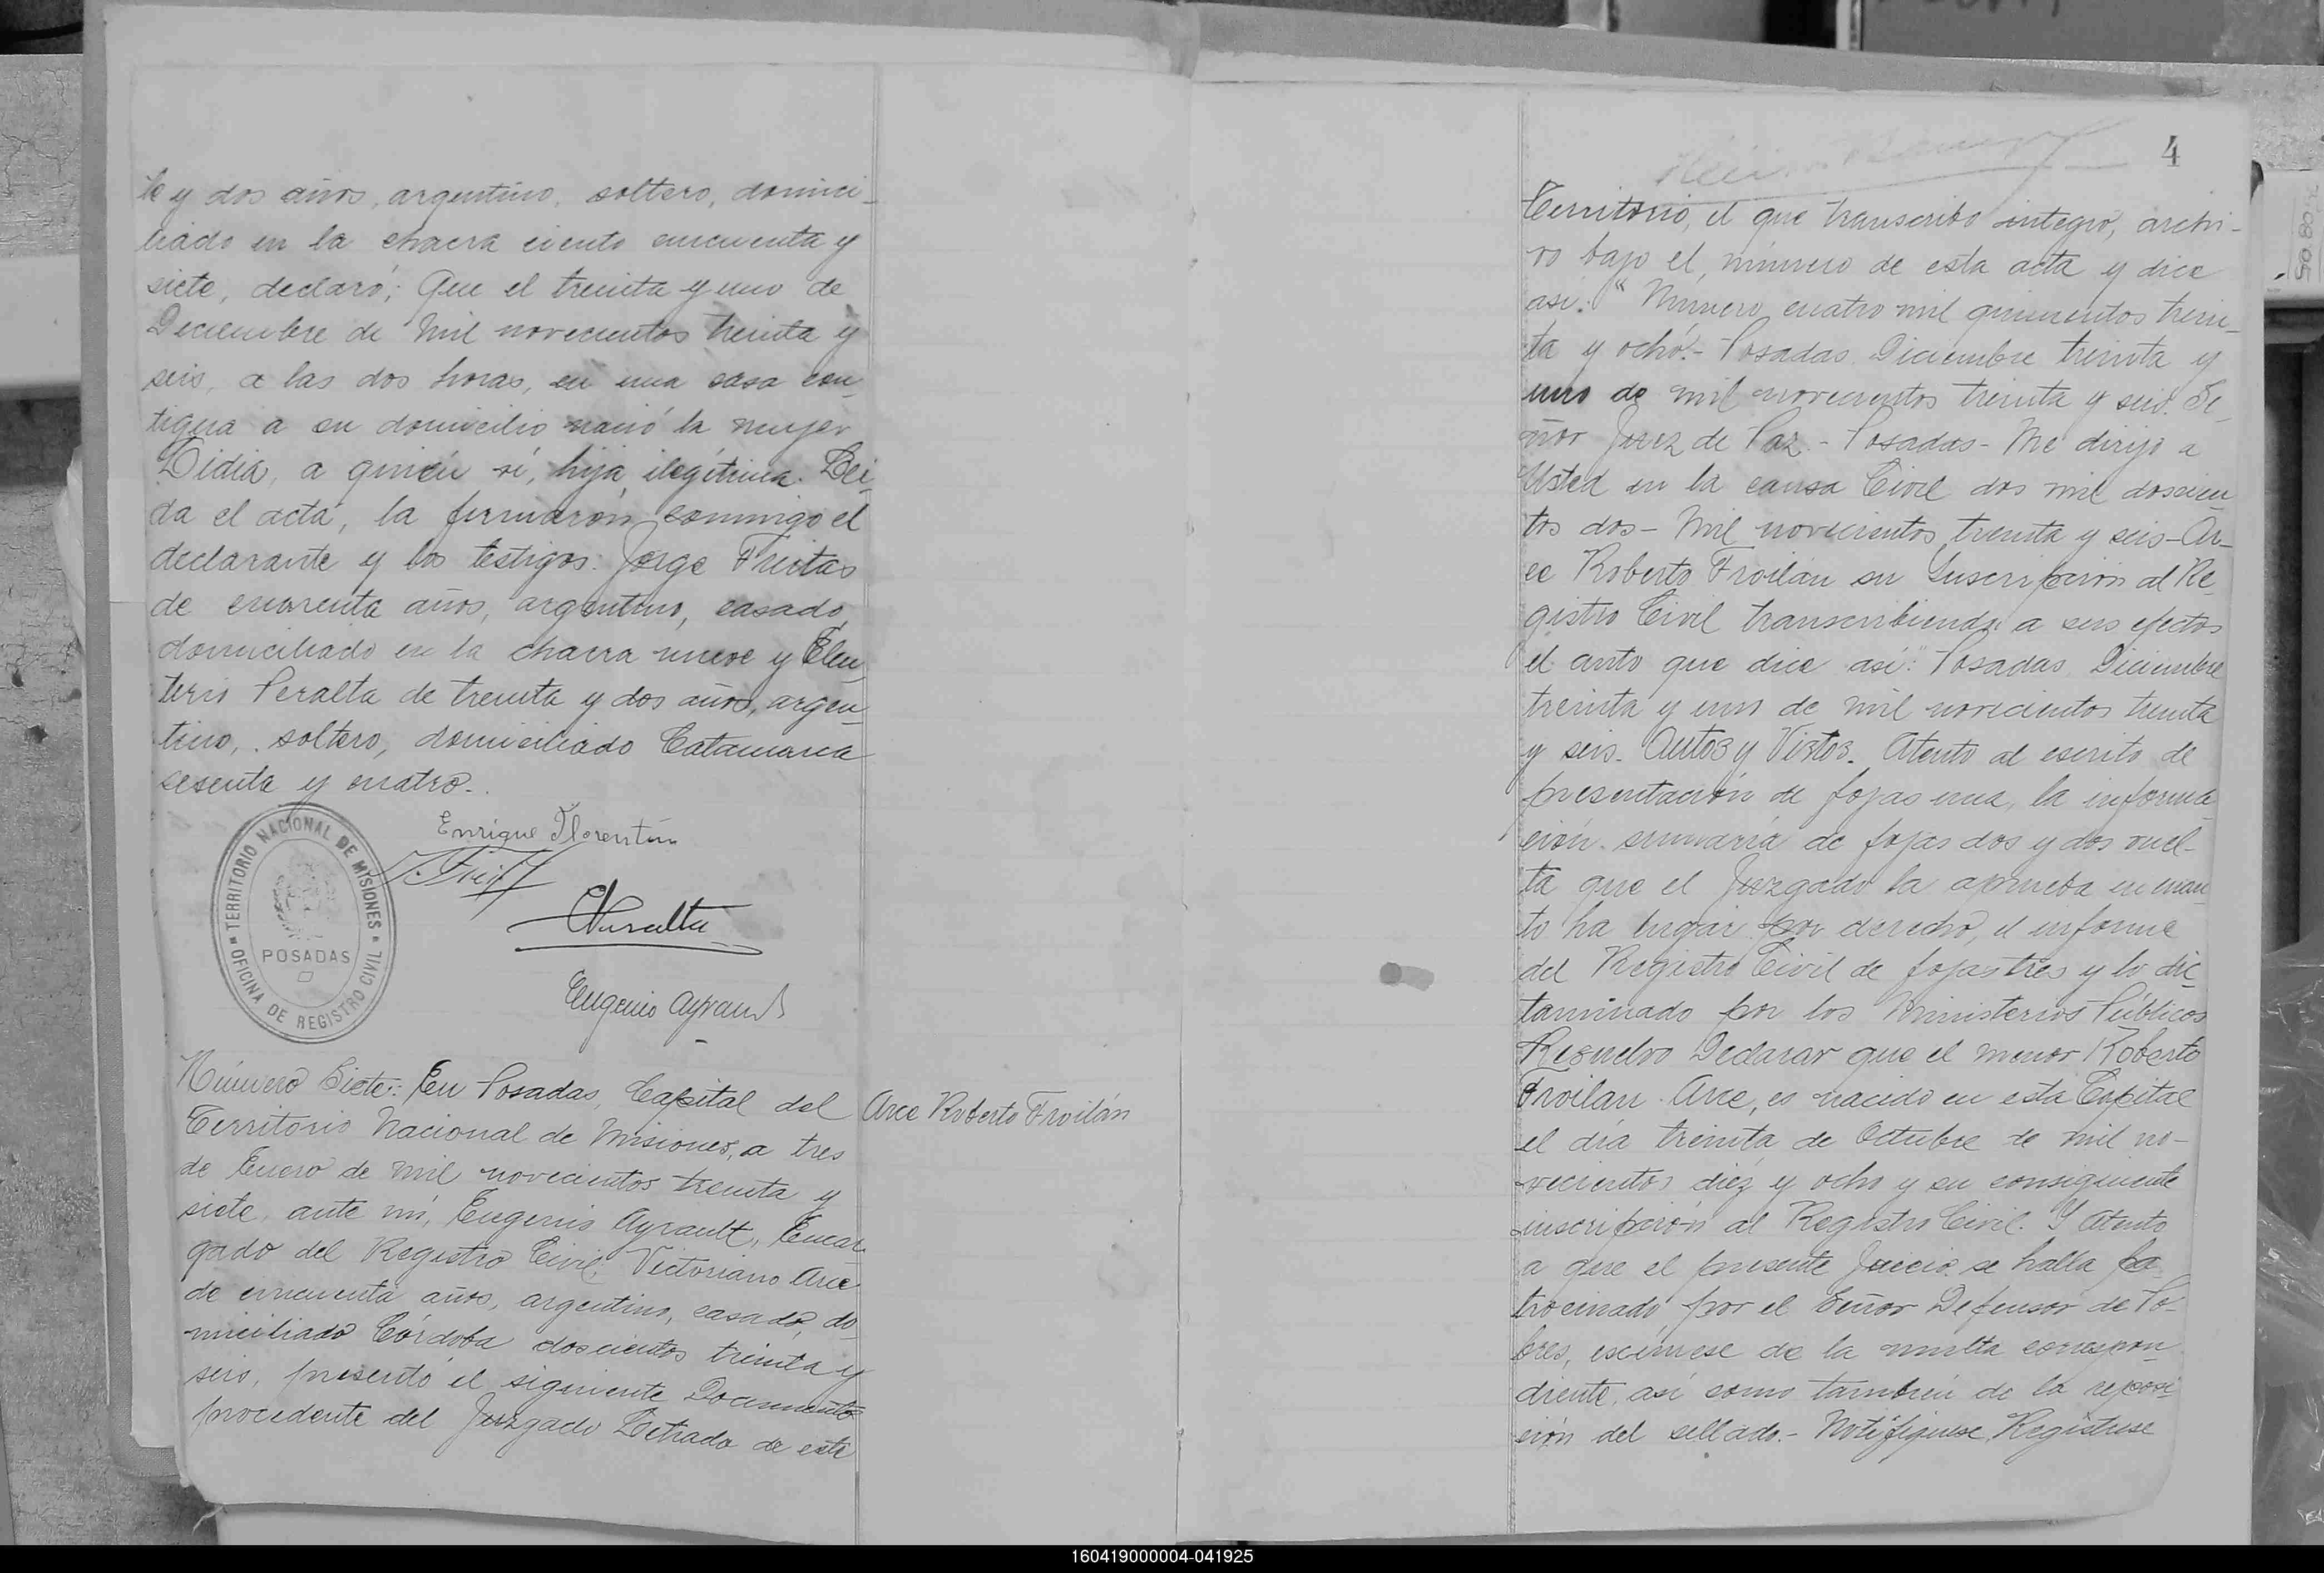 te y dos años, argentino, soltero, domici-
liado en la chacra ciento cincuenta y
siete, declaró: Que el treinta y uno de
Diciembre de mil novecientos treinta y
seis, a las dos horas, en una casa con-
tigua a su domicilio nació la mujer
Lidia, a quien vi, hija ilegítima. Lei-
da el acta, la firmaron conmigo el
declarante y los testigos: Jorge Freitas
de cuarenta años, argentino, casado,
domiciliado en la chacra nueve y Eleu-
terio Peralta de treinta y dos años, argen-
tino, soltero, domiciliado Catamarca
sesenta y cuatro.-
Enrique Florentín
EPeralta
Eugenio Ayrault
TERRITORIO NACIONAL DE MISIONES
POSADAS
OFICINA DE REGISTRO CIVIL
Número Siete: En Posadas, Capital del
Territorio Nacional de Misiones, a tres
de Enero de mil novecientos treinta y
siete, ante mí, Eugenio Ayrault, Encar-
gado del Registro Civil, Victoriano Arce
de cincuenta años, argentino, casado, do-
miciliado Córdoba doscientos treinta y
seis, presentó el siguiente Documento
procedente del Juzgado Letrado de este
Arce Roberto Froilán
4
Territorio, el que transcribo integro, archi-
vo bajo el número de esta acta y dice
asi: "Número cuatro mil quinientos trein-
ta y ocho.- Posadas Diciembre treinta y
uno de mil novecientos treinta y seis. Se-
ñor Juez de Paz.- Posadas- Me dirijo a
Usted en la causa Civil dos mil doscien-
tos dos- Mil novecientos treinta y seis- Ar-
ce Roberto Froilán su Inscripción al Re-
gistro Civil transcribiendo a sus efectos
el auto que dice así: "Posadas Diciembre
treinta y uno de mil novecientos treinta
y seis. Autos y Vistos. Atento al escrito de
presentación de fojas una, la informa-
ción sumaria de fojas dos y dos vuel-
ta que el Juzgado la aprueba en cuan-
to ha lugar por derecho, el informe
del Registro Civil de fojas tres y lo dic-
taminado por los Ministerios Públicos
Resuelvo Declarar que el menor Roberto
Froilan Arce, es nacido en esta Capital
el día treinta de Octubre de mil no-
vecientos diez y ocho y su consiguiente
inscripción al Registro Civil. Y Atento
a que el presente Juicio se halla pa-
trocinado por el Señor Defensor de Po-
bres, eximese de la multa correspon-
diente, así como también de la reposi-
ción del sellado.- Notifíquese Registrese
160419000004-041925